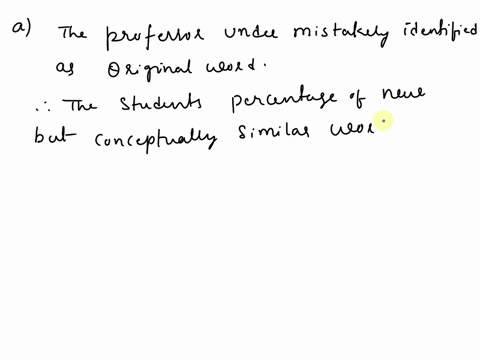 a) The professor under mistakely identified
as Original word.
∴ The Students percentage of new
but conceptually similar wor